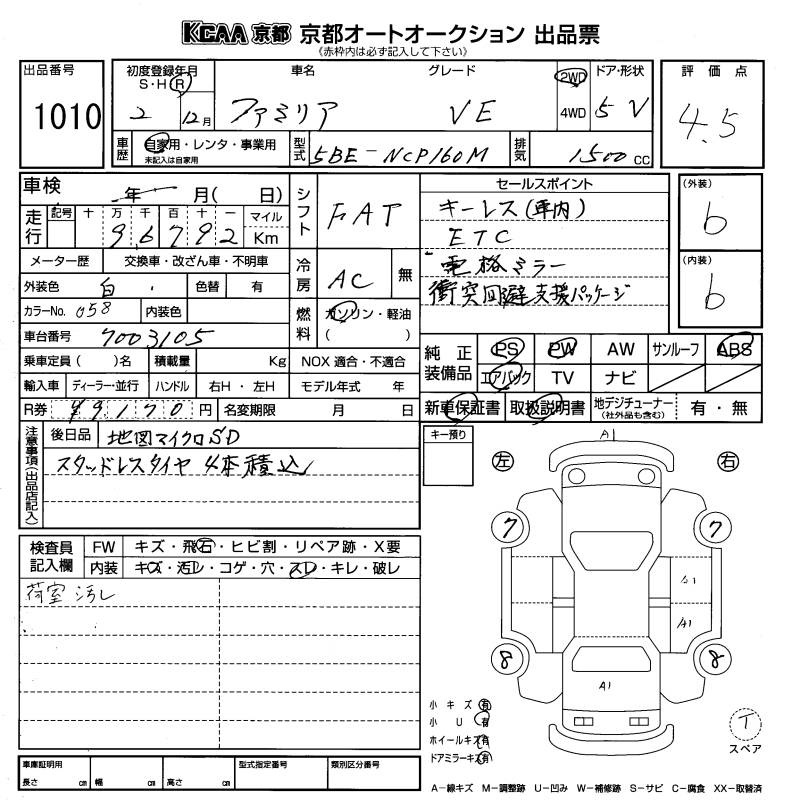 KCAA 京都 京都オートオークション 出品票
《赤枠内は必ず記入して下さい》
出品番号
1010
初度登録年月
S・H・R
2 12月
車名
ファミリア
グレード
VE
2WD
4WD
ドア・形状
5 V
評価点
4.5
車歴
自家用・レンタ・事業用
未記入は自家用
型式
5BE-NCP160M
排気
1500 cc
車検 年 月( 日)
走行
記号 十 万 千 百 十 一 マイル
9 6 7 9 2 Km
シフト
FAT
メーター歴 交換車・改ざん車・不明車
外装色 白 色替 有
冷房
AC 無
カラーNo. 058 内装色
燃料
ガソリン・軽油
( )
車台番号 7003105
乗車定員( )名 積載量 Kg NOX 適合・不適合
輸入車 ディーラー・並行 ハンドル 右H・左H モデル年式 年
R券 ¥9170 円 名変期限 月 日
セールスポイント
キーレス(車内)
ETC
電格ミラー
衝突回避支援パッケージ
(外装)
b
(内装)
b
純正装備品
PS PW AW サンルーフ ABS
エアバック TV ナビ
新車保証書 取扱説明書 地デジチューナー(社外品も含む) 有・無
注意事項(出品店記入)
後日品 地図マイクロSD
スタッドレスタイヤ 4本積込
キー預り
検査員記入欄
FW キズ・飛石・ヒビ割・リペア跡・X要
内装 キズ・汚れ・コゲ・穴・スレ・キレ・破レ
荷室 汚し
A1
左
右
7
7
A1
8
8
A1
小キズ 有
小U 有
ホイールキズ 有
ドアミラーキズ 有
T
スペア
車庫証明用
長さ cm 幅 cm 高さ cm
型式指定番号
類別区分番号
A－線キズ M－調整跡 U－凹み W－補修跡 S－サビ C－腐食 XX－取替済